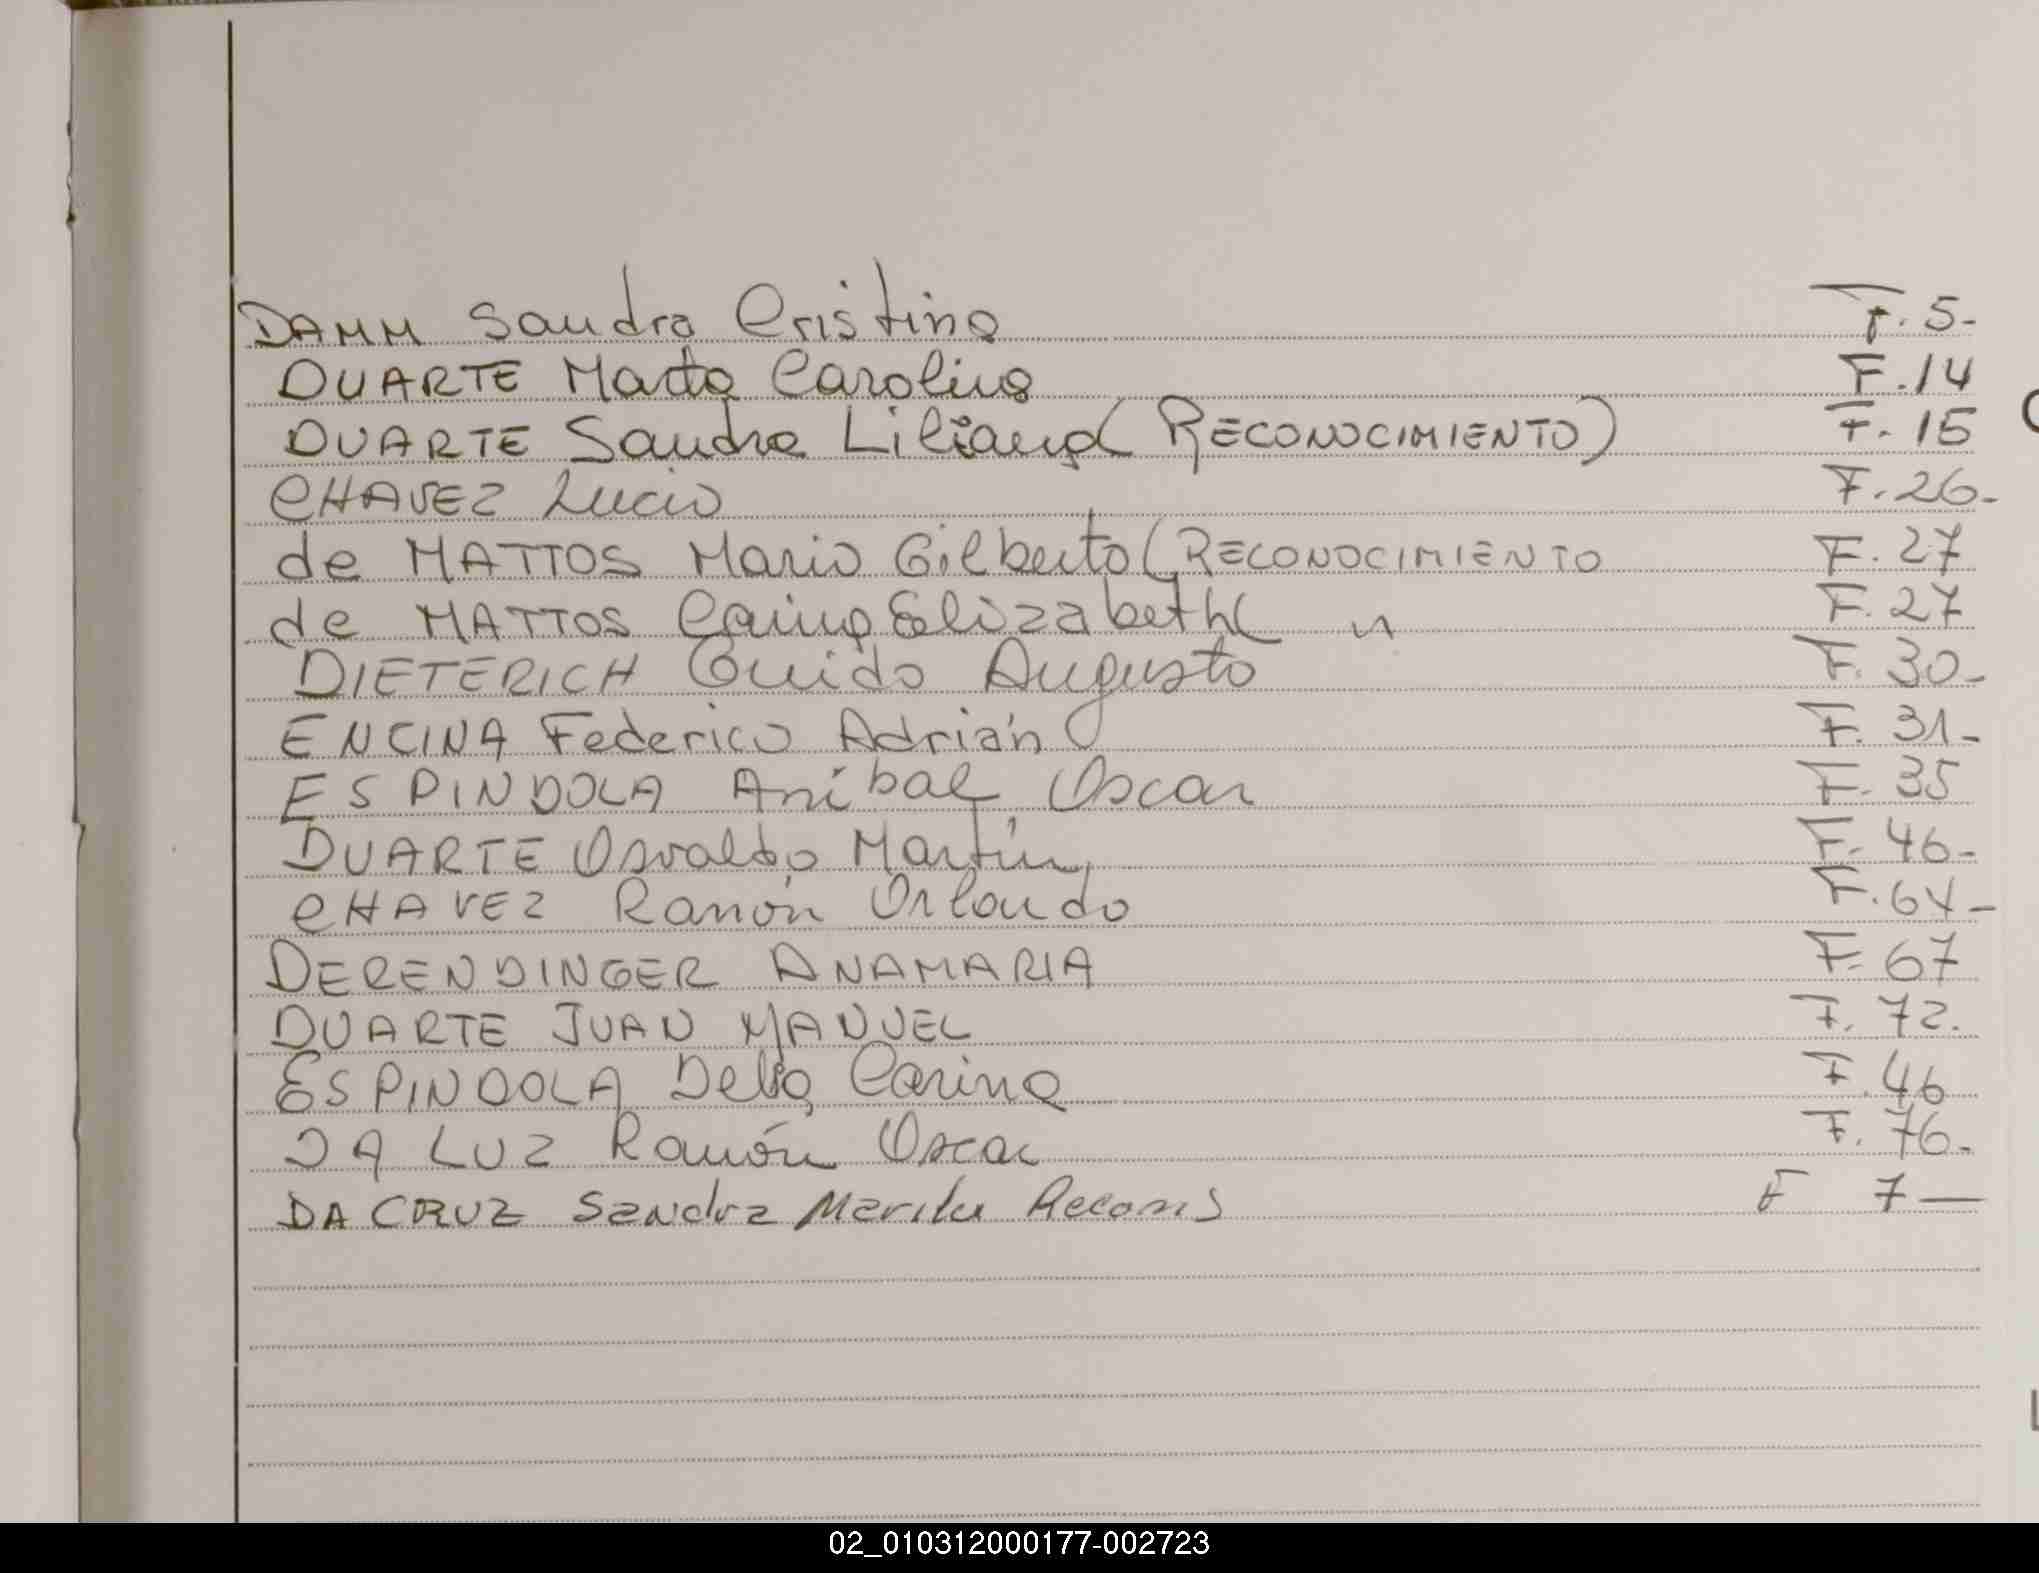 DAMM Sandra Cristina F. 5-
DUARTE Marta Carolina F. 14
DUARTE Sandra Liliana (RECONOCIMIENTO) F. 15
CHAVEZ Lucio F. 26-
de MATTOS Mario Gilberto (RECONOCIMIENTO F. 27
de MATTOS Elizabeth ( " F. 27
DIETERICH Guido Augusto F. 30-
ENCINA Federico Adrián F. 31-
ESPINDOLA Aníbal Oscar F. 35
DUARTE Osvaldo Martín F. 46-
CHAVEZ Ramón Orlando F. 64-
DERENDINGER ANAMARIA F. 67
DUARTE JUAN MANUEL F. 72.
ESPINDOLA Delia Carina F. 46
DA LUZ Ramón Oscar F. 76-
DA CRUZ Sandra F 7—
02_010312000177-002723